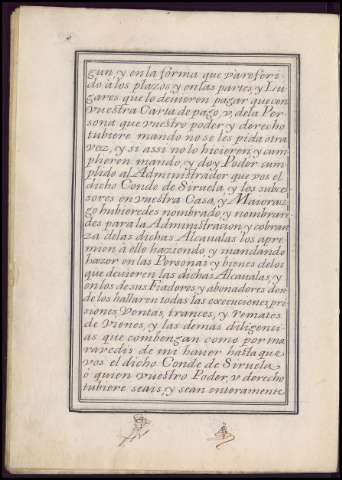 gun, y en la forma que va referi-
do à los plazos y en las partes, y Lu-
gares que lo devieren pagar que con
vuestra Carta de pago, v, de la Per-
sona que vuestro poder y derecho
tubiere mando no se les pida otra
vez, y si assi no lo hicieren y cum-
plieren mando, y doy Poder cum-
plido al Administrador que vos el
dicho Conde de Siruela, y los subce-
sores en vuestra Casa, y Maioraz-
go hubieredes nombrado, y nombrare-
des para la Administracion y cobran-
za de las dichas Alcaualas los apre-
mien à ello haziendo y mandando
hazer en las Personas, y bienes de los
que devieren las dichas Alcaualas, y
en los de sus Fiadores y abonadores don-
de los hallaren todas las execuciones, pri-
siones, Ventas, trances, y remates
de vienes, y las demas diligenci-
as que combengan como por ma-
ravedis de mi haver hasta que
vos el dicho Conde de Siruela,
ò quien vuestro Poder, v derecho
tubiere seais, y sean enteramente